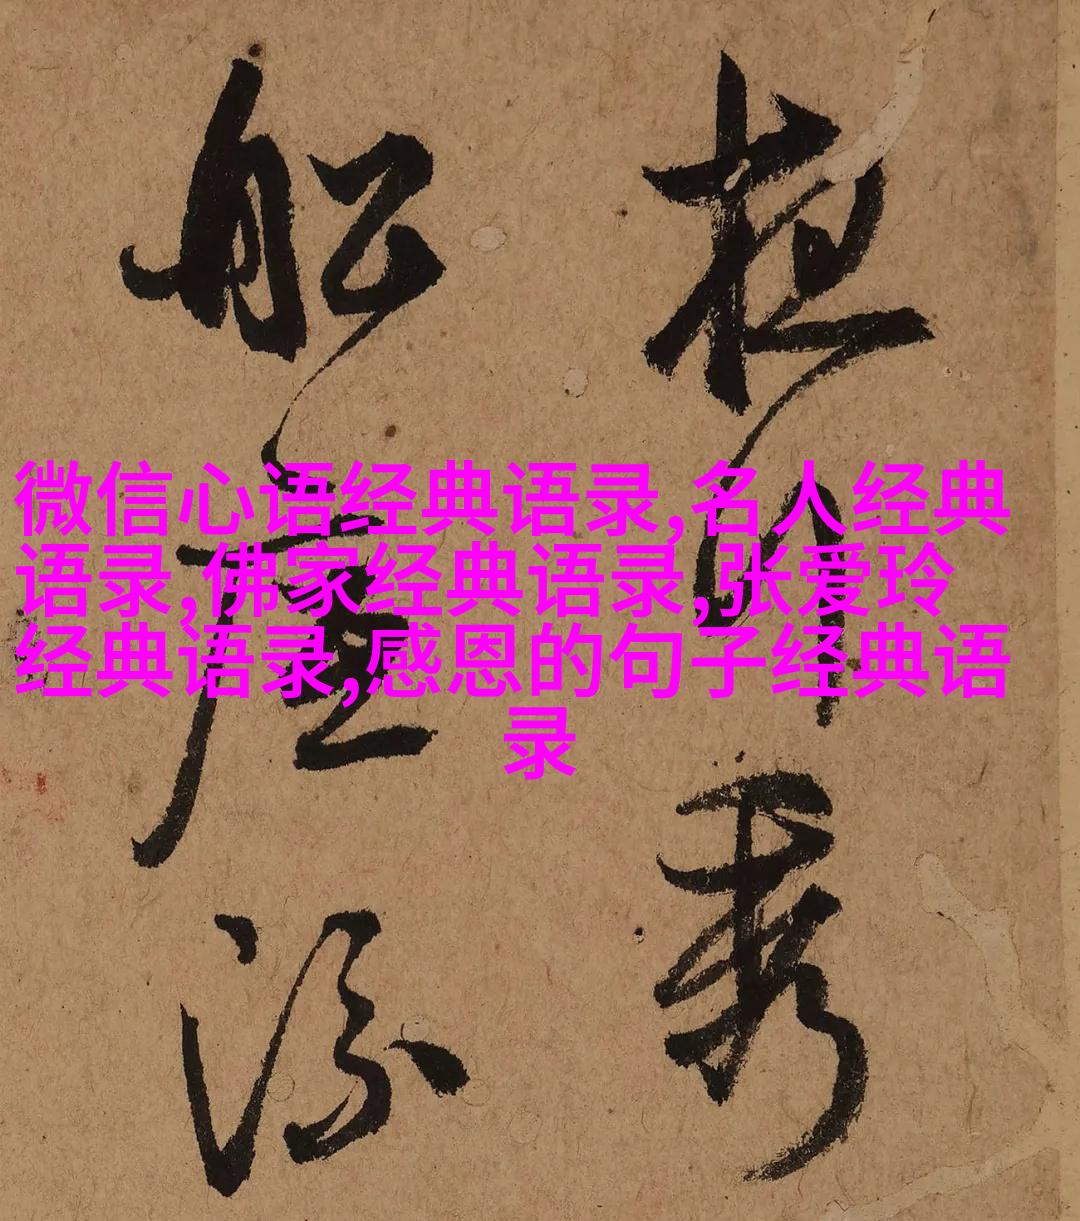 微信心语经典语录,名人经典
语录,佛家经典语录,张爱玲
经典语录,感恩的句子经典语
录
川秀
船